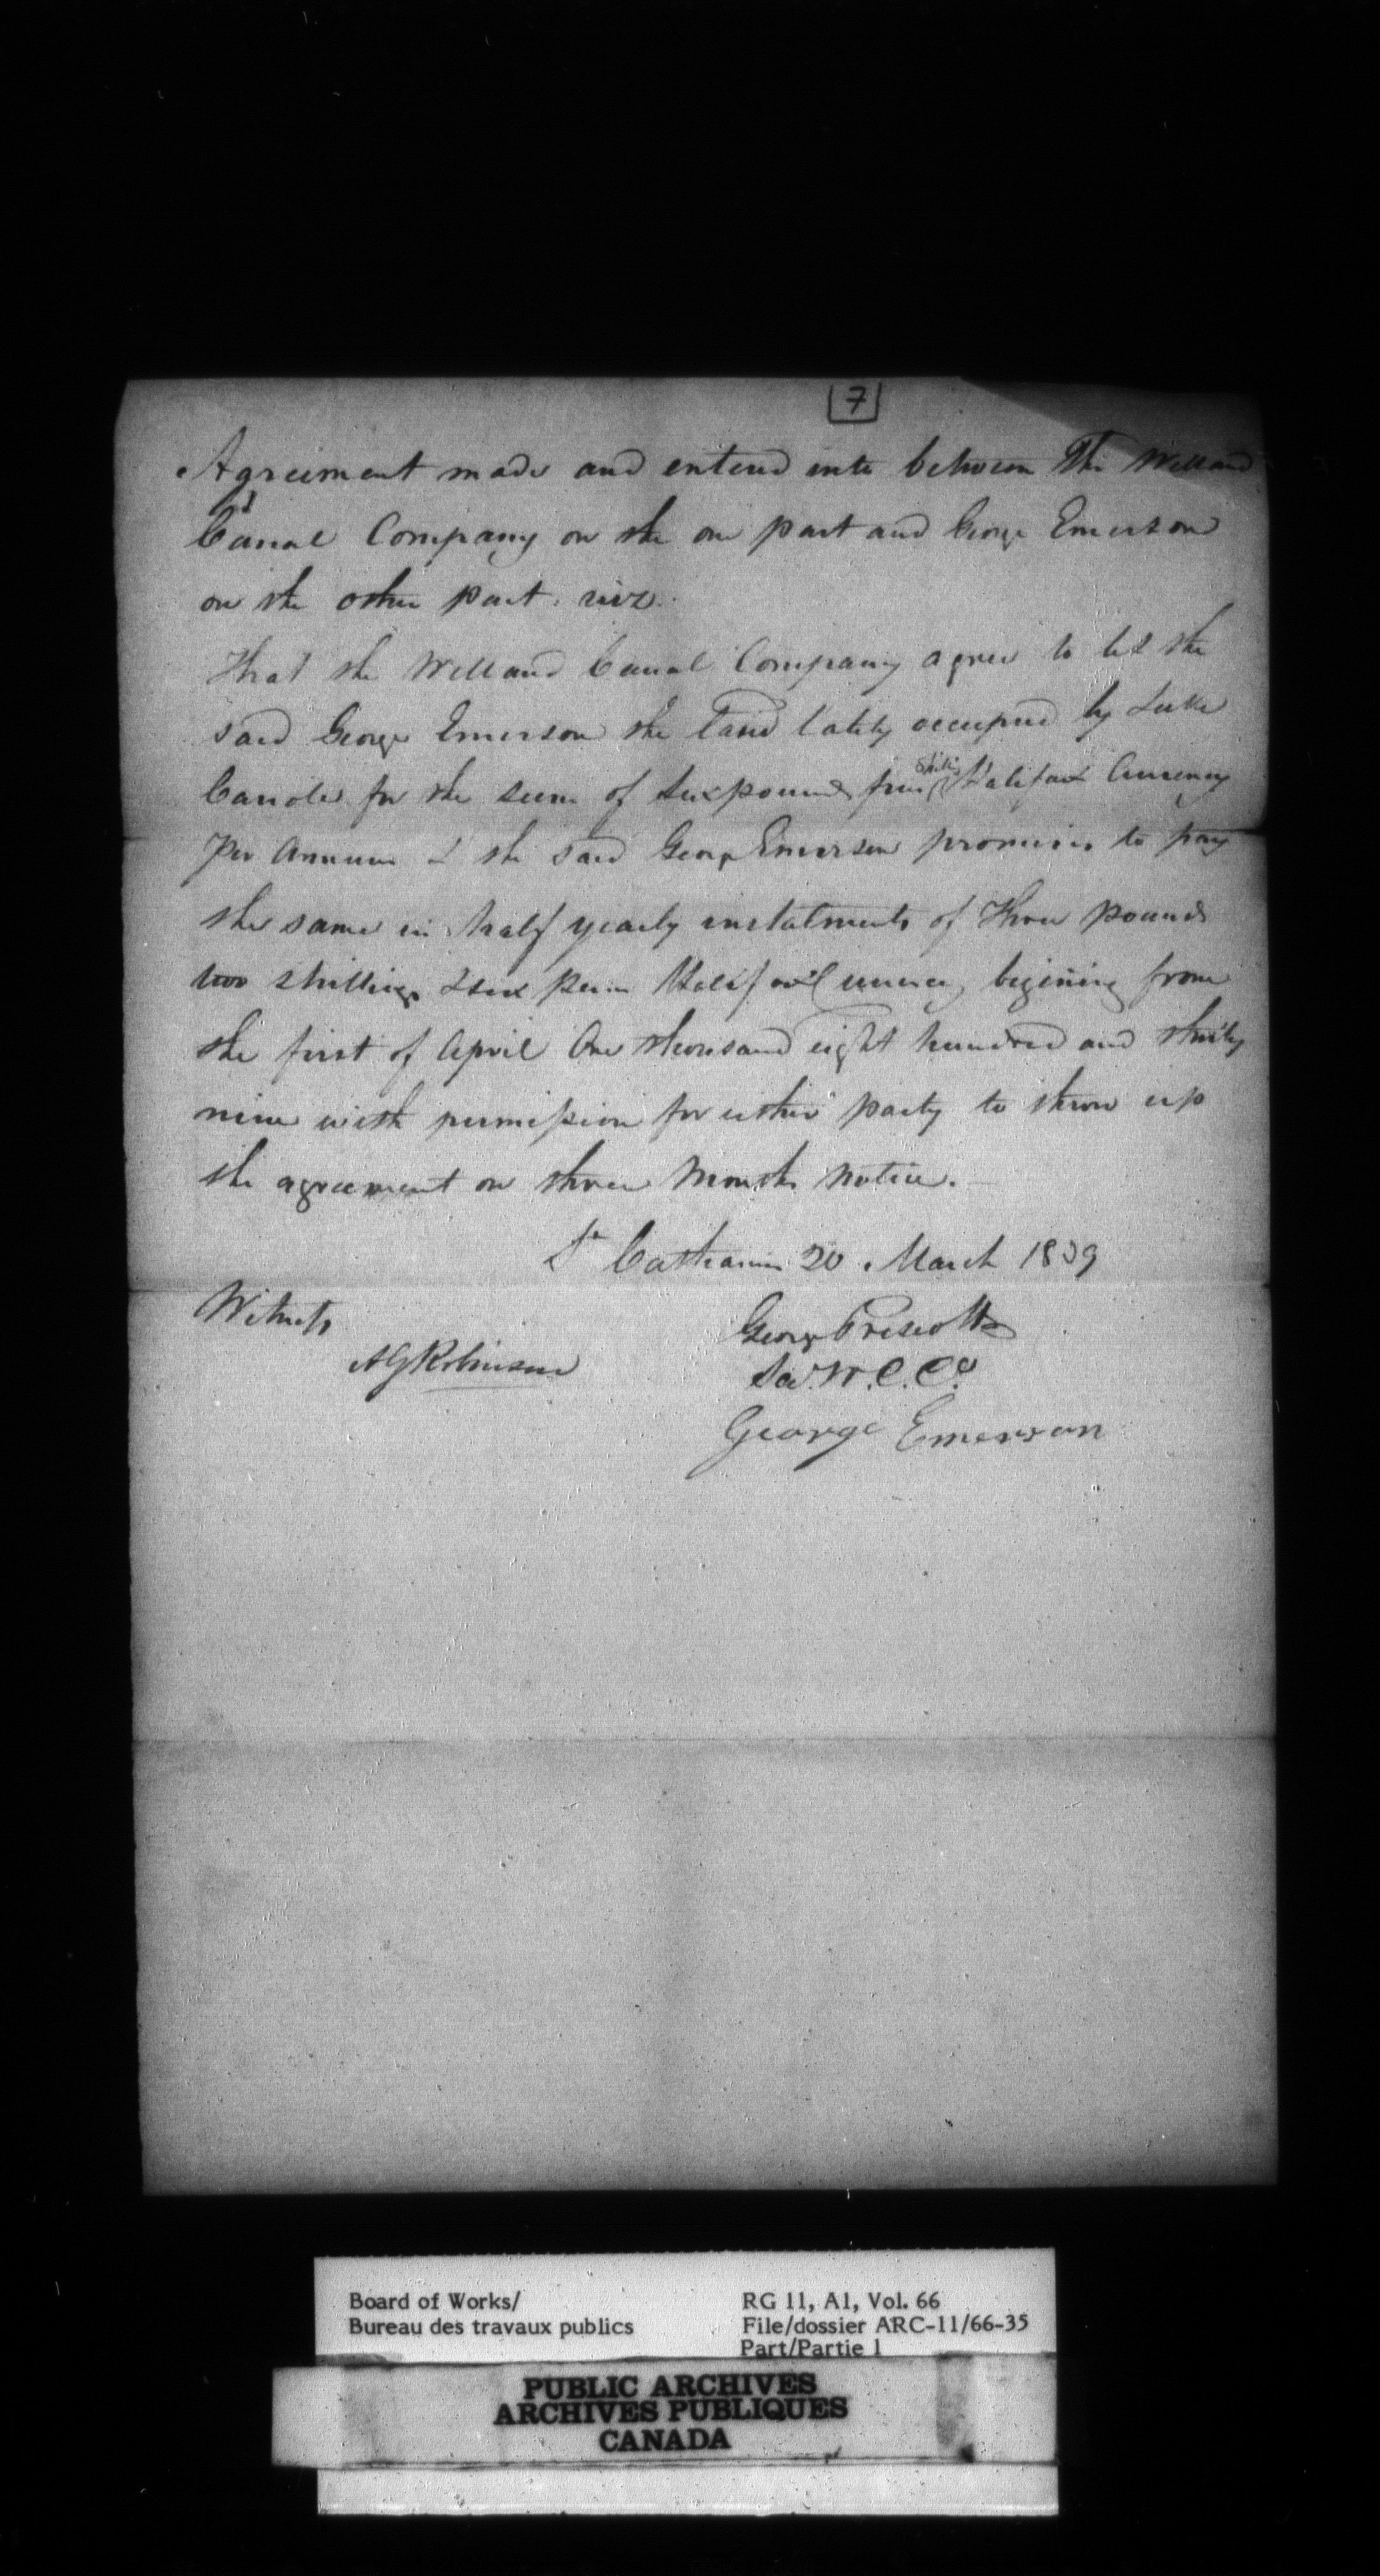 7
Agreement made and entered into between The Welland
Canal Company on the one part and George Emerson
on the other part. viz.
That the Welland Canal Company agree to let the
said George Emerson the land lately occupied by Luke
for the sum of Six pounds five Shillings Halifax Currency
Per Annum & the said George Emerson promises to pay
the same in half yearly instalments of Three pounds
two shillings & six pence Halifax Currency begining from
the first of April One thousand eight hundred and thirty
nine with permission for either party to throw up
the agreement on three Months notice.
St Catharines 20 March 1839
Witness
AG Robinson
George Prescott
Sec. W. C. Co.
George Emerson
Board of Works/
Bureau des travaux publics
RG 11, A1, Vol. 66
File/dossier ARC-11/66-35
Part/Partie 1
PUBLIC ARCHIVES
ARCHIVES PUBLIQUES
CANADA